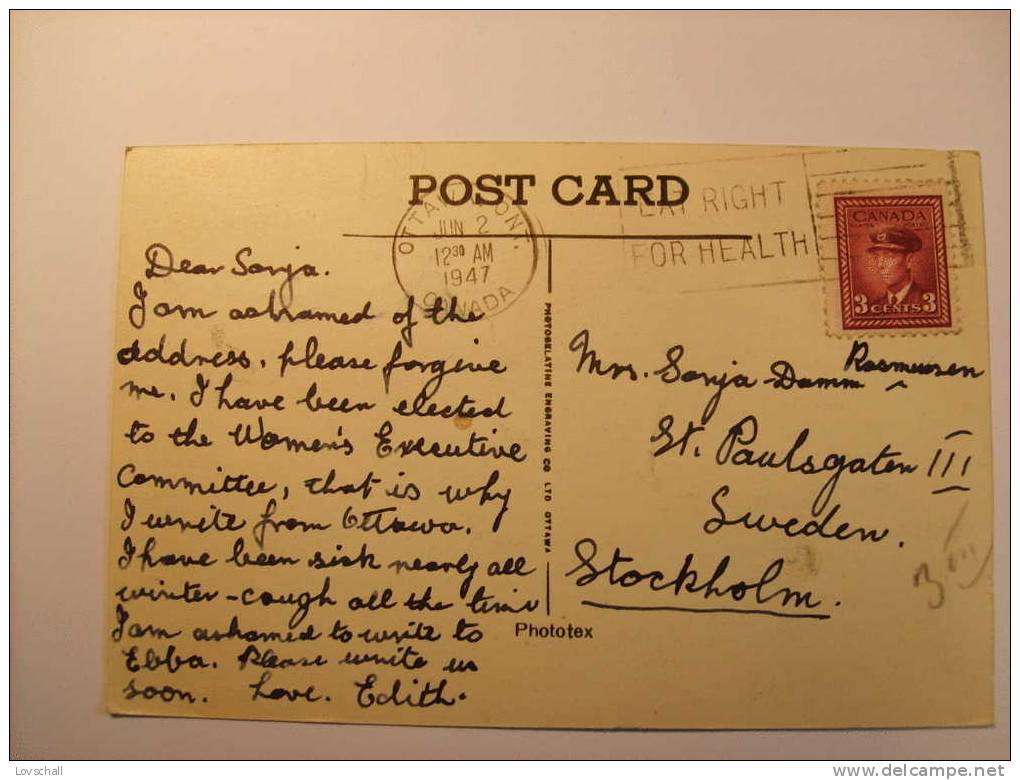 POST CARD
OTTAWA, ONT.
JUN 2
12 30 AM
1947
CANADA
EAT RIGHT
FOR HEALTH
CANADA
3 CENTS 3
Dear Sonja.
I am ashamed of the
address, please forgive
me. I have been elected
to the Women's Executive
Committee, that is why
I write from Ottawa.
I have been sick nearly all
winter-cough all the time
I am ashamed to write to
Ebba. Please write us
soon. Love. Edith.
PHOTOGELATINE ENGRAVING CO LTD OTTAWA
Phototex
Rasmussen
Mrs. Sonja Damm ^
St. Paulsgaten III
Sweden.
Stockholm.
Lovschall
www.delcampe.net